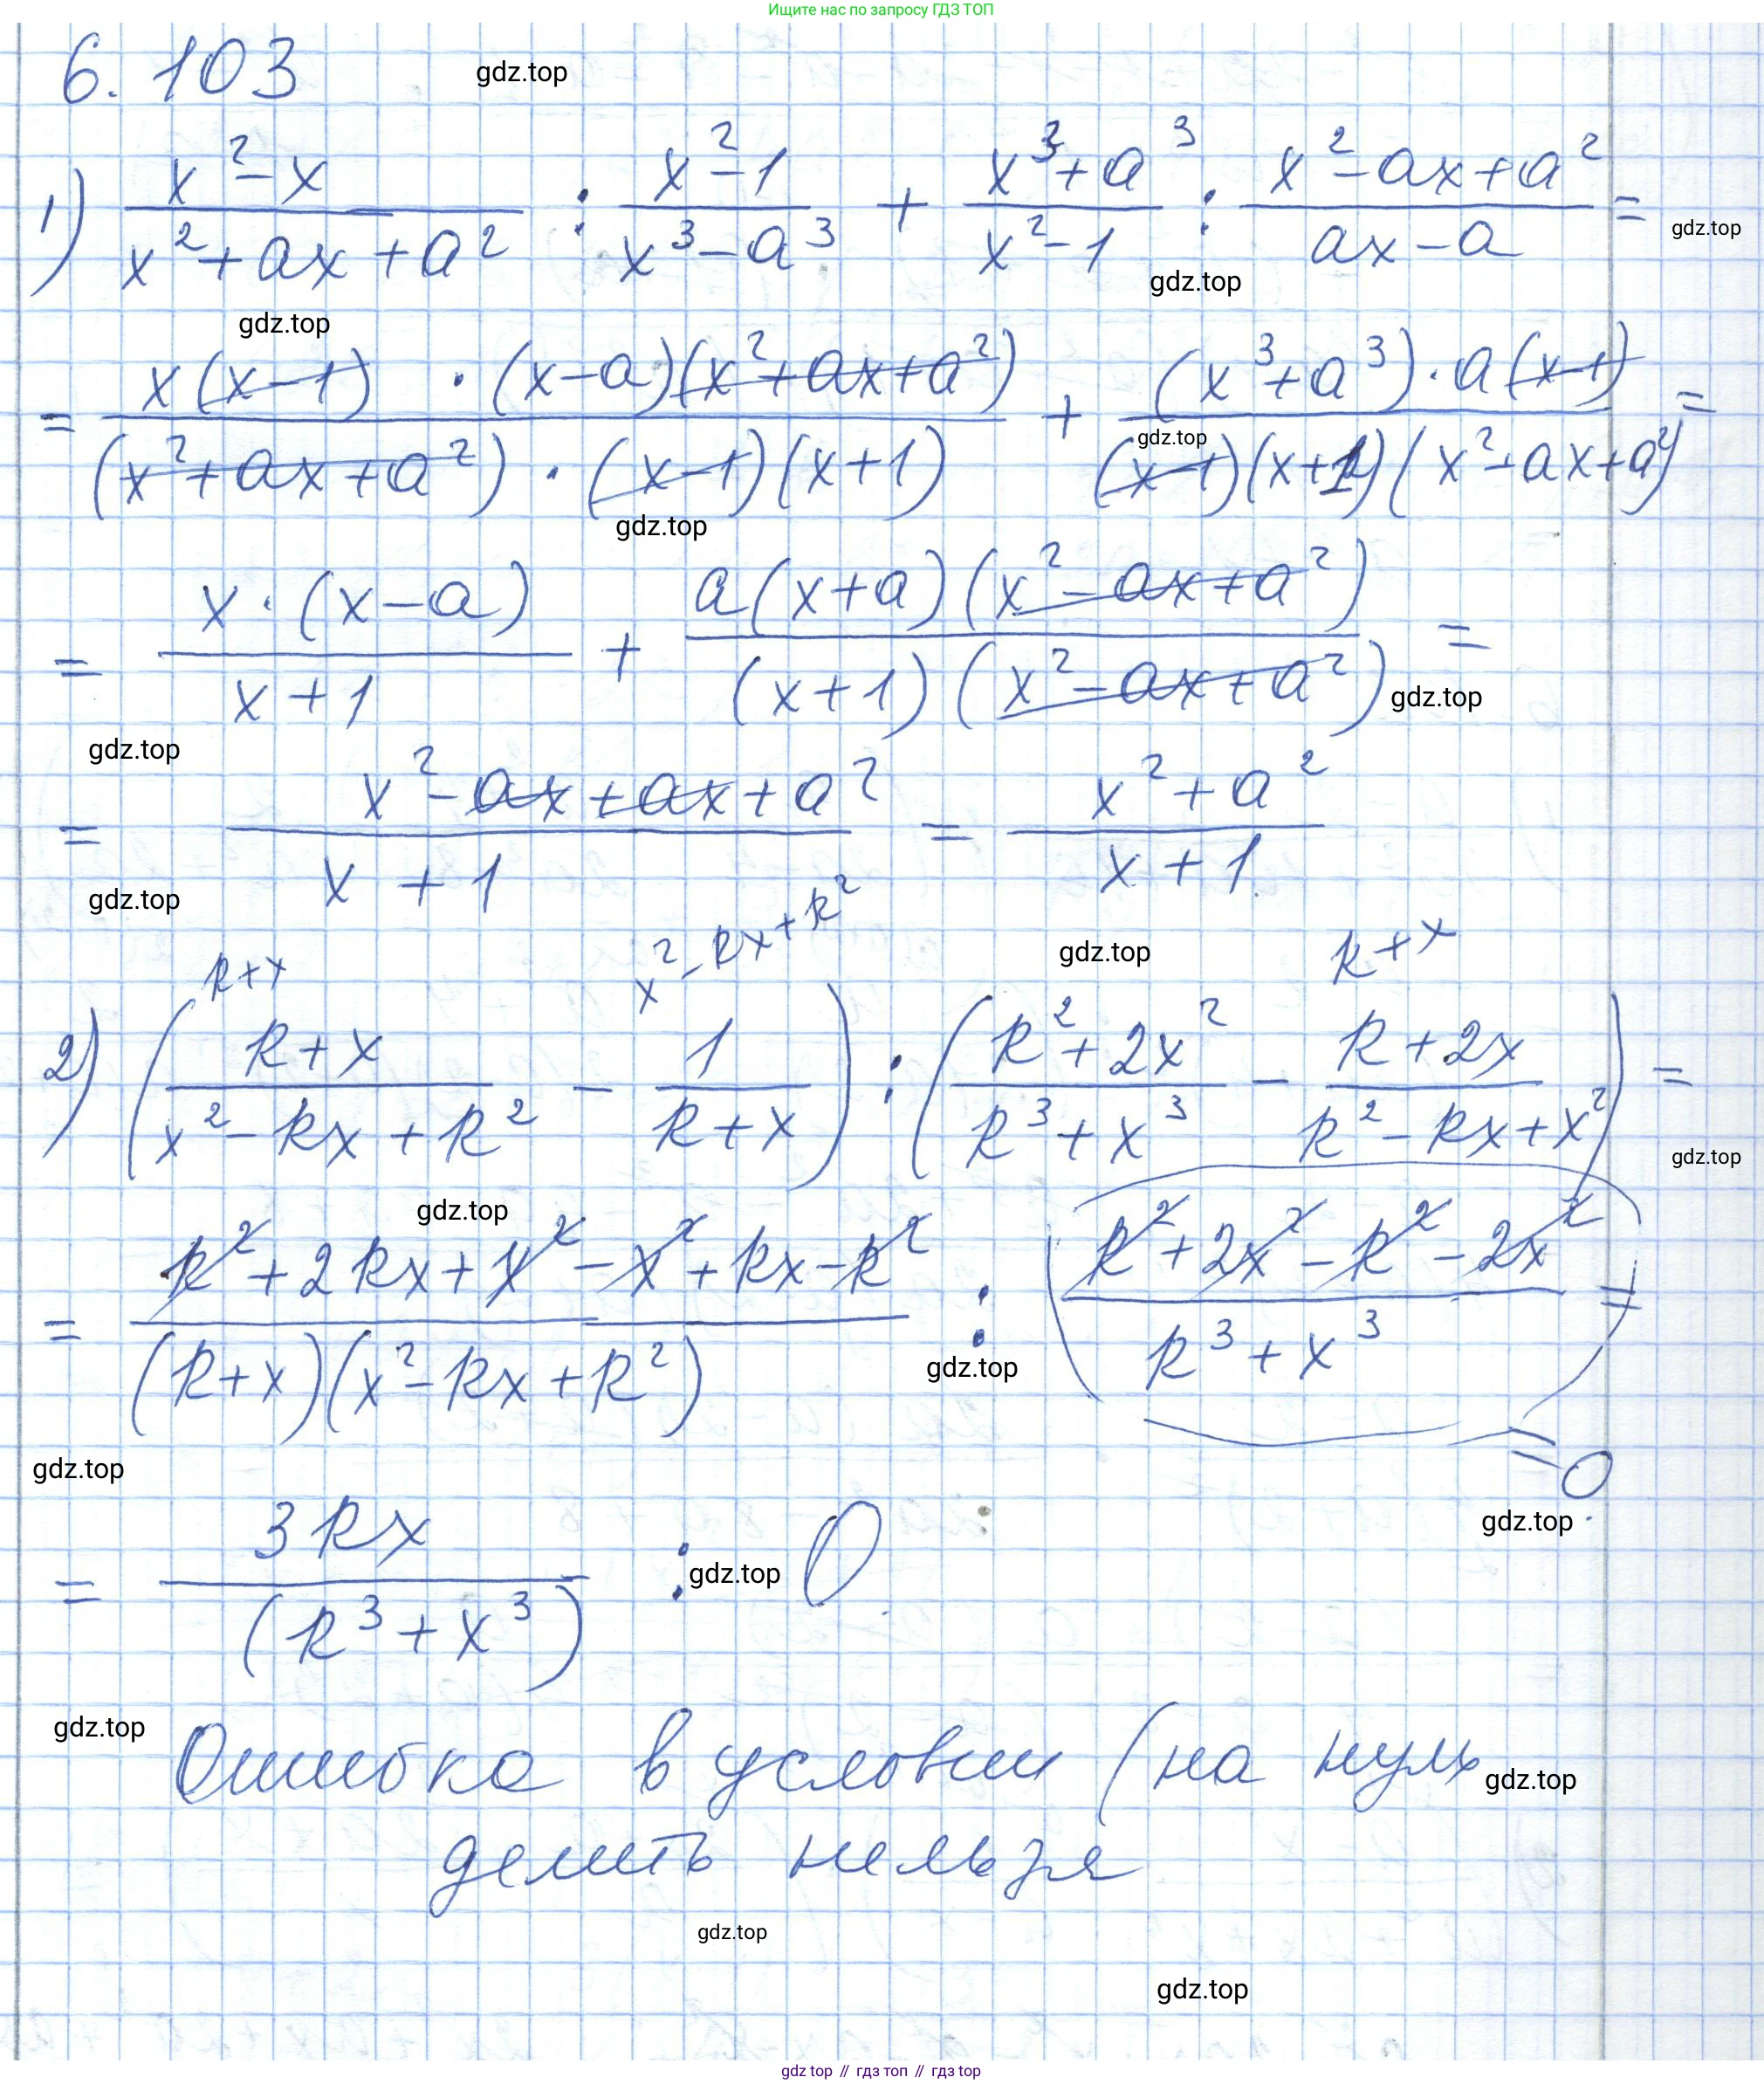 Ищите нас по запросу ГДЗ ТОП
6.103
gdz.top
1) (x² - x)/(x² + ax + a²) : (x² - 1)/(x³ - a³) + (x³ + a³)/(x² - 1) : (x² - ax + a²)/(ax - a) =
gdz.top
gdz.top
gdz.top
= (x(x-1) · (x-a)(x² + ax + a²))/((x² + ax + a²) · (x-1)(x+1)) + ((x³ + a³) · a(x-1))/((x-1)(x+1)(x² - ax + a²)) =
gdz.top
gdz.top
= (x · (x-a))/(x+1) + (a(x+a)(x² - ax + a²))/((x+1)(x² - ax + a²)) =
gdz.top
gdz.top
= (x² - ax + ax + a²)/(x+1) = (x² + a²)/(x+1)
gdz.top
k+x x² - kx + k² gdz.top k+x
2) ((k+x)/(x² - kx + k²) - 1/(k+x)) : ((k² + 2x²)/(k³ + x³) - (k+2x)/(k² - kx + x²)) =
gdz.top
gdz.top
= (k² + 2kx + x² - x² + kx - k²)/((k+x)(x² - kx + k²)) : ((k² + 2x² - k² - 2x²)/(k³ + x³)) =
gdz.top
= 0
gdz.top
gdz.top
= 3kx/(k³ + x³) : 0
gdz.top
gdz.top
Ошибка в условии (на нуль
gdz.top
делить нельзя
gdz.top
gdz.top
gdz top // гдз топ // гдз top